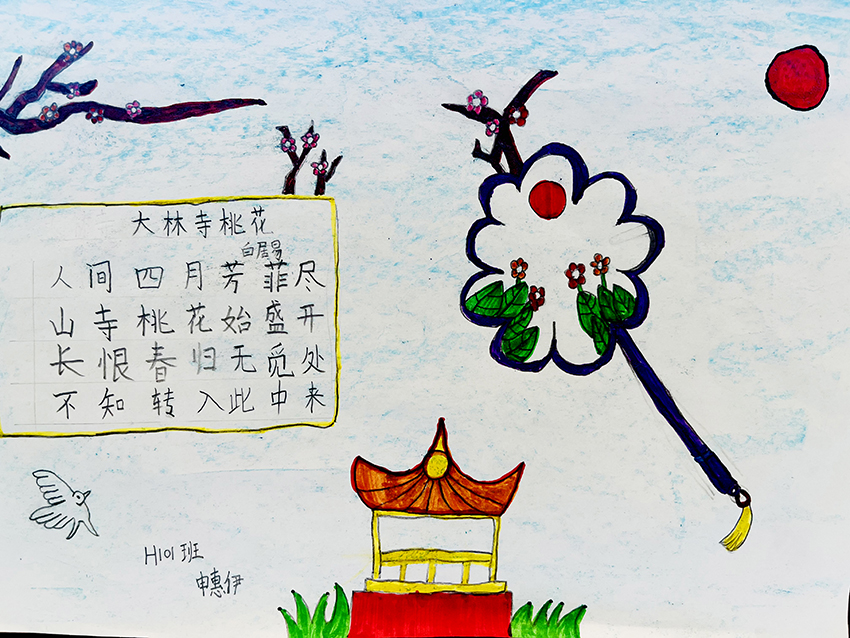 大林寺桃花
白居易
人间四月芳菲尽
山寺桃花始盛开
长恨春归无觅处
不知转入此中来
H101班
申惠伊